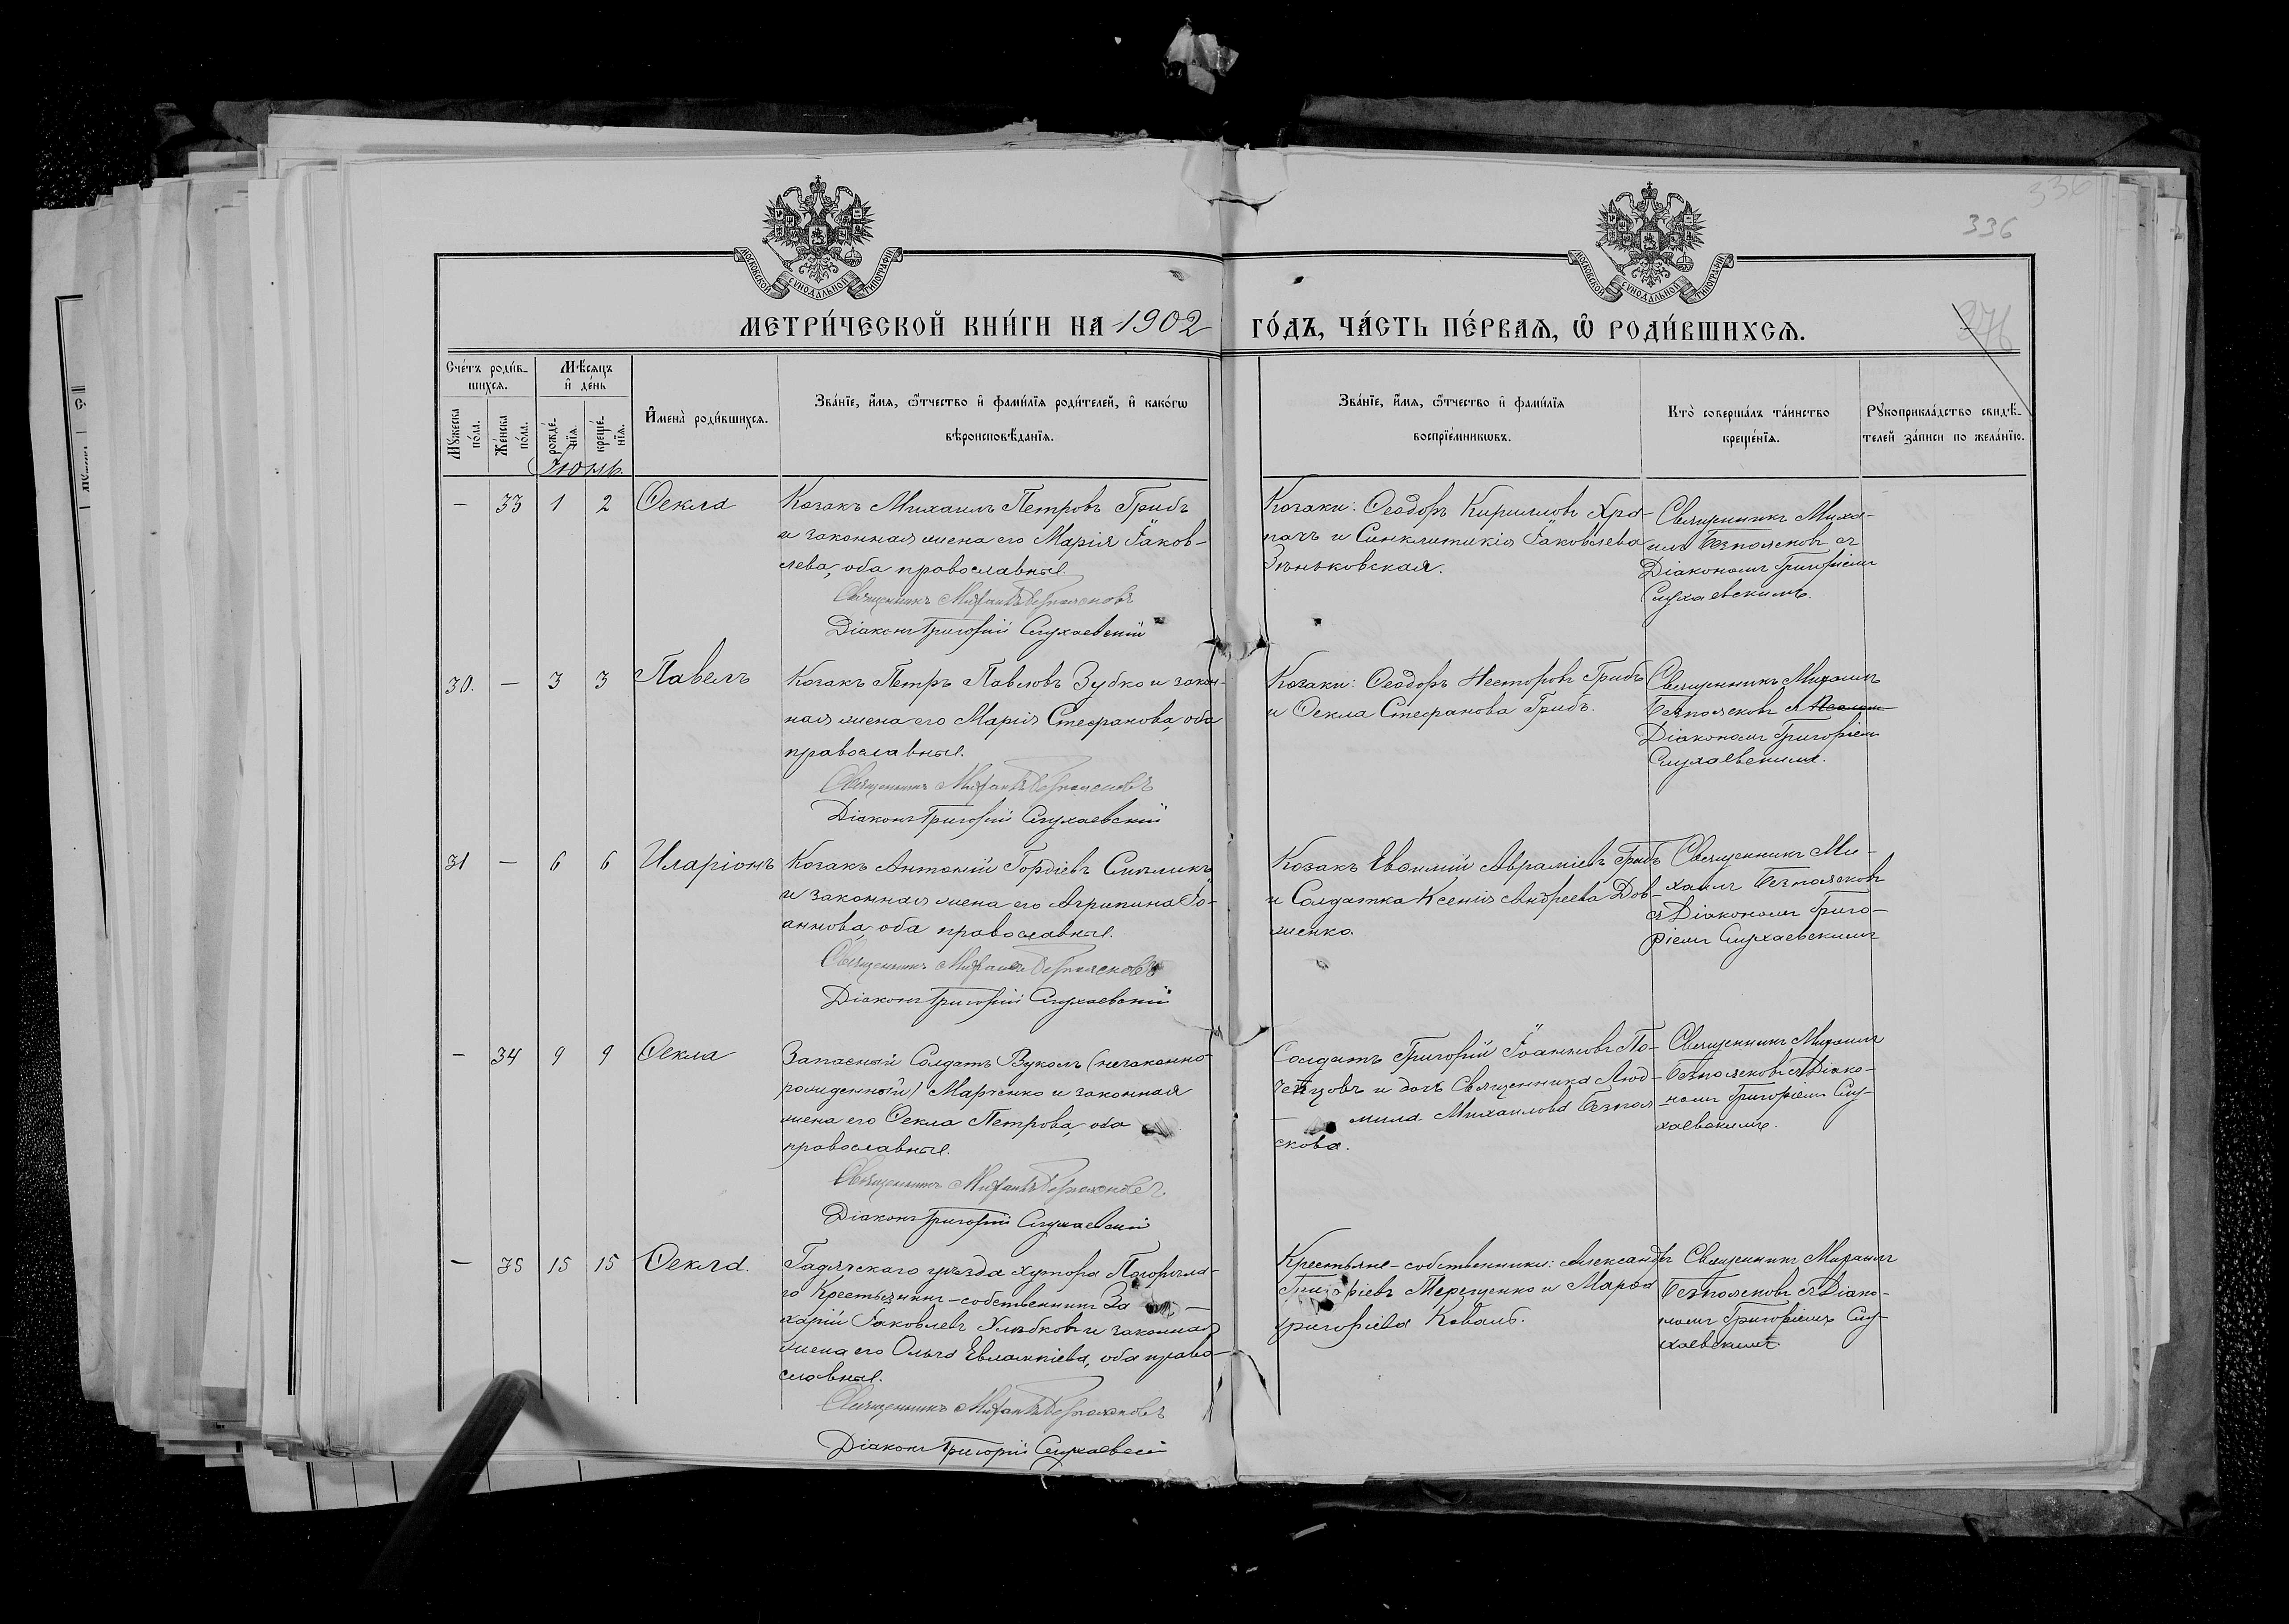 336
336
276
МОСКОВСКОЙ СѴНОДАЛЬНОЙ ТИПОГРАФІИ
МОСКОВСКОЙ СѴНОДАЛЬНОЙ ТИПОГРАФІИ
МЕТРИ́ЧЕСКОЙ КНИ́ГИ НА 1902 ГО́ДЪ, ЧА́СТЬ ПЕ́РВАѦ, Ѡ҆ РОДИ́ВШИХСѦ.
Сче́тъ роди́в-
шихсѧ.
Мѣ́сѧцъ
и҆ де́нь
Мꙋ́жеска
по́ла.
Же́нска
по́ла.
рожде́-
нїѧ.
креще́-
нїѧ.
И҆мена̀ роди́вшихсѧ.
Зва́нїе, и҆́мѧ, ѻ҆́тчество и҆ фами́лїѧ роди́телей, и҆ како́гѡ
вѣроисповѣ́данїѧ.
Зва́нїе, и҆́мѧ, ѻ҆́тчество и҆ фами́лїѧ
воспрїе́мникѡвъ.
Кто̀ соверша́лъ та́инство
креще́нїѧ.
Рꙋкоприкла́дство свидѣ́-
телей за́писи по жела́нїю.
Іюнь.
— 33 1 2 Ѳекла
Козакъ Михаилъ Петровъ Грибъ
и законная жена его Марія Іаков-
лева, оба православные.
Священникъ Михаилъ Безпоясковъ
Діаконъ Григорій Слухаевскій
Козаки: Ѳеодоръ Кирилловъ Хра-
пачъ и Синклитикія Іаковлева
Зѣньковская.
Священникъ Миха-
илъ Безпоясковъ съ
Діакономъ Григоріемъ
Слухаевскимъ.
30. — 3 3 Павелъ
Козакъ Петръ Павловъ Зубко и закон-
ная жена его Марія Стефанова, оба
православные.
Священникъ Михаилъ Безпоясковъ
Діаконъ Григорій Слухаевскій
Козаки: Ѳеодоръ Несторовъ Грибъ
и Ѳекла Стефанова Грибъ.
Священникъ Михаилъ
Безпоясковъ съ
Діакономъ Григоріемъ
Слухаевскимъ.
31 — 6 6 Иларіонъ
Козакъ Антоній Гордіевъ
и законная жена его Агрипина Іо-
аннова, оба православные.
Священникъ Михаилъ Безпоясковъ
Діаконъ Григорій Слухаевскій
Козакъ Евѳимій Авраміевъ Грибъ
и Солдатка Ксенія Андреева Дов-
женко.
Священникъ Ми-
хаилъ Безпоясковъ
съ Діакономъ Григо-
ріемъ Слухаевскимъ
— 34 9 9 Ѳекла
Запасный Солдатъ Вуколъ (незаконно-
рожденный) Марченко и законная
жена его Ѳекла Петрова, оба
православные.
Священникъ Михаилъ Безпоясковъ
Діаконъ Григорій Слухаевскій
Солдатъ Григорій Іоанновъ По-
и дочь Священника Люд-
мила Михаилова Безпоя-
скова.
Священникъ Михаилъ
Безпоясковъ съ Діако-
номъ Григоріемъ Слу-
хаевскимъ.
— 35 15 15 Ѳекла.
Гадячскаго уѣзда хутора Погорѣла-
го Крестьянинъ-собственникъ За-
харій Іаковлевъ Улыбковъ и законная
жена его Ольга Евлампіева, оба право-
славные.
Священникъ Михаилъ Безпоясковъ
Діаконъ Григорій Слухаевскій
Крестьяне-собственники: Александръ
Григоріевъ Терещенко и Марѳа
Григоріева Коваль.
Священникъ Михаилъ
Безпоясковъ съ Діако-
номъ Григоріемъ Слу-
хаевскимъ.